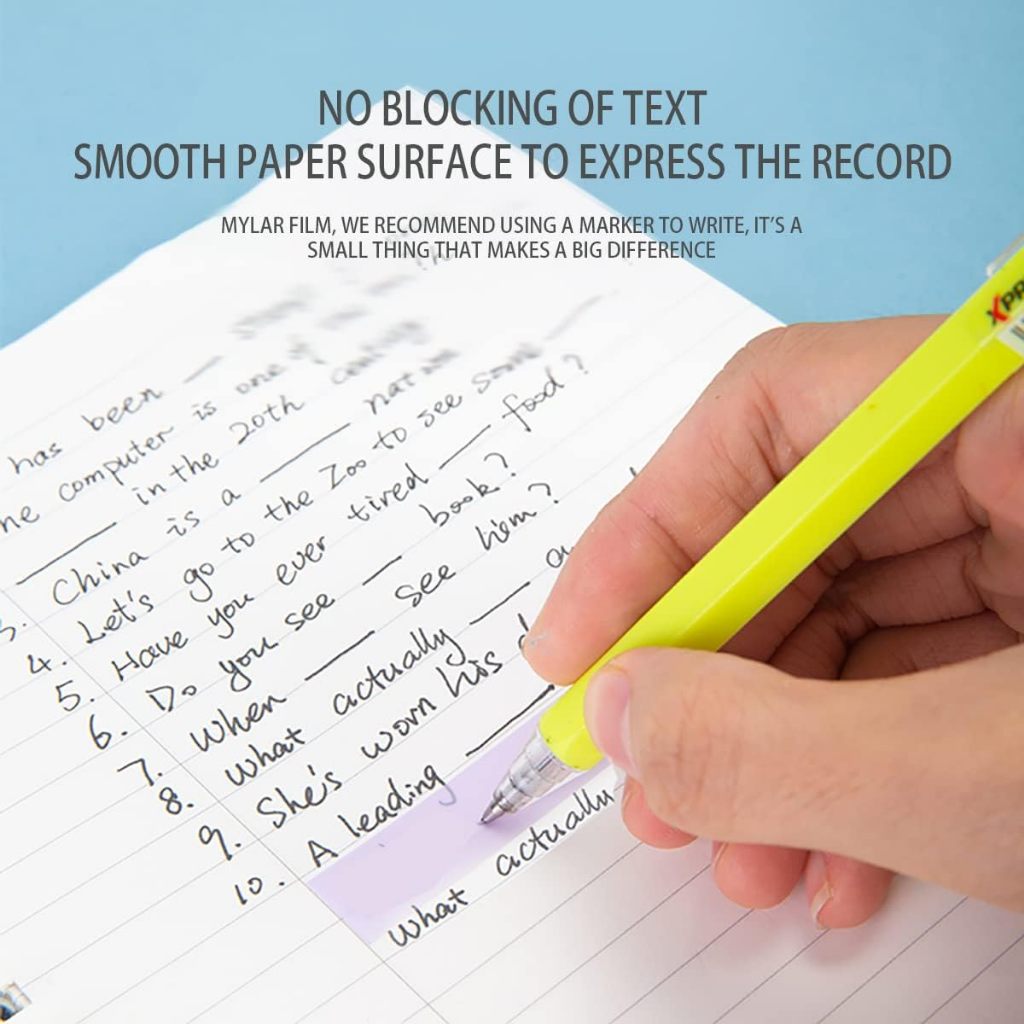 NO BLOCKING OF TEXT
SMOOTH PAPER SURFACE TO EXPRESS THE RECORD
MYLAR FILM, WE RECOMMEND USING A MARKER TO WRITE, IT'S A
SMALL THING THAT MAKES A BIG DIFFERENCE
XPR
has been
computer is one
in the 20th
3. China is a
4. Let's go to the Zoo to see some
5. Have you ever tired food?
6. Do you see book?
7. When see him?
8. What actually
9. She's worn his
10. A leading
What actually